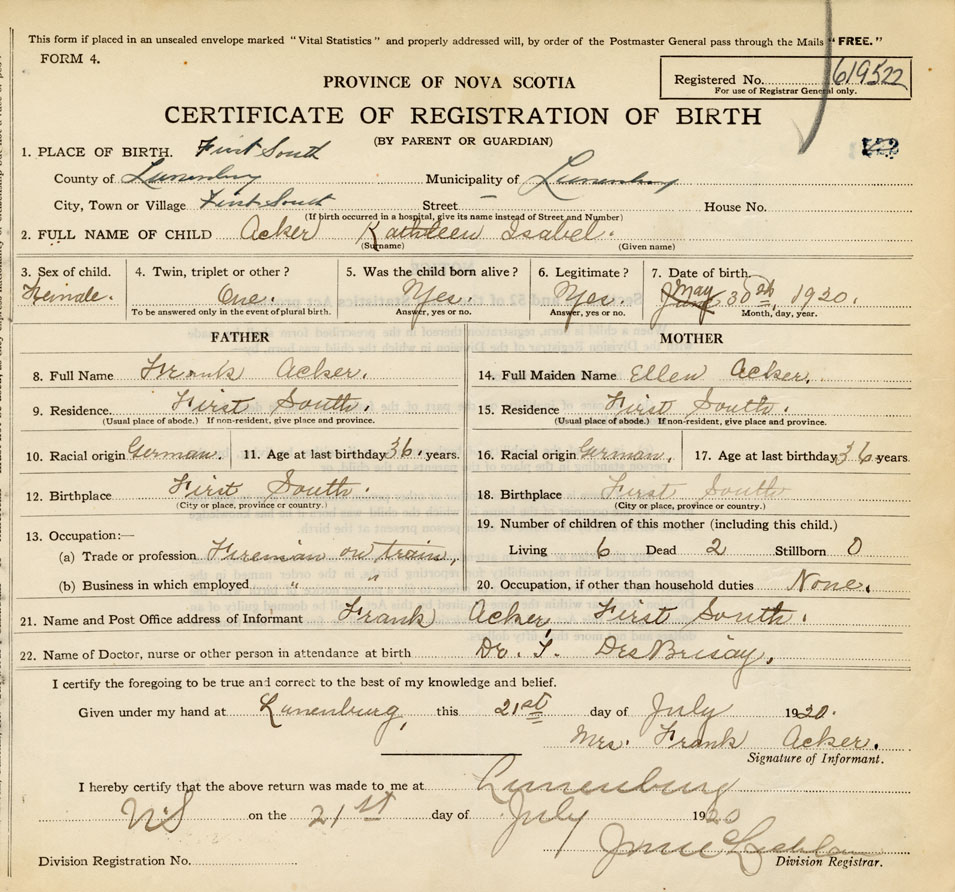 This form if placed in an unsealed envelope marked "Vital Statistics" and properly addressed will, by order of the Postmaster General pass through the Mails "FREE."
FORM 4.
Registered No. 619522
For use of Registrar General only.
PROVINCE OF NOVA SCOTIA
CERTIFICATE OF REGISTRATION OF BIRTH
(BY PARENT OR GUARDIAN)
1. PLACE OF BIRTH. First South
County of Lunenburg Municipality of Lunenburg
City, Town or Village First South Street House No.
(If birth occurred in a hospital, give its name instead of Street and Number)
2. FULL NAME OF CHILD Acker Kathleen Isabel.
(Surname) (Given name)
3. Sex of child. 4. Twin, triplet or other? 5. Was the child born alive? 6. Legitimate? 7. Date of birth.
Female. One. Yes. Yes. May 30th, 1920.
To be answered only in the event of plural birth. Answer, yes or no. Answer, yes or no. Month, day, year.
FATHER MOTHER
8. Full Name Frank Acker. 14. Full Maiden Name Ellen Acker.
9. Residence. First South. 15. Residence First South.
(Usual place of abode.) If non-resident, give place and province. (Usual place of abode.) If non-resident, give place and province.
10. Racial origin German. 11. Age at last birthday 36. years. 16. Racial origin German. 17. Age at last birthday 36 years.
12. Birthplace First South. 18. Birthplace First South
(City or place, province or country.) (City or place, province or country.)
13. Occupation:— 19. Number of children of this mother (including this child.)
(a) Trade or profession Fireman on train, Living 6 Dead 2 Stillborn 0
(b) Business in which employed " " 20. Occupation, if other than household duties None.
21. Name and Post Office address of Informant Frank Acker, First South.
22. Name of Doctor, nurse or other person in attendance at birth Dr. T. DesBrisay.
I certify the foregoing to be true and correct to the best of my knowledge and belief.
Given under my hand at Lunenburg, this 21st day of July 1920.
Mrs. Frank Acker.
Signature of Informant.
I hereby certify that the above return was made to me at Lunenburg
NS on the 21st day of July 1920
Division Registration No. Division Registrar.